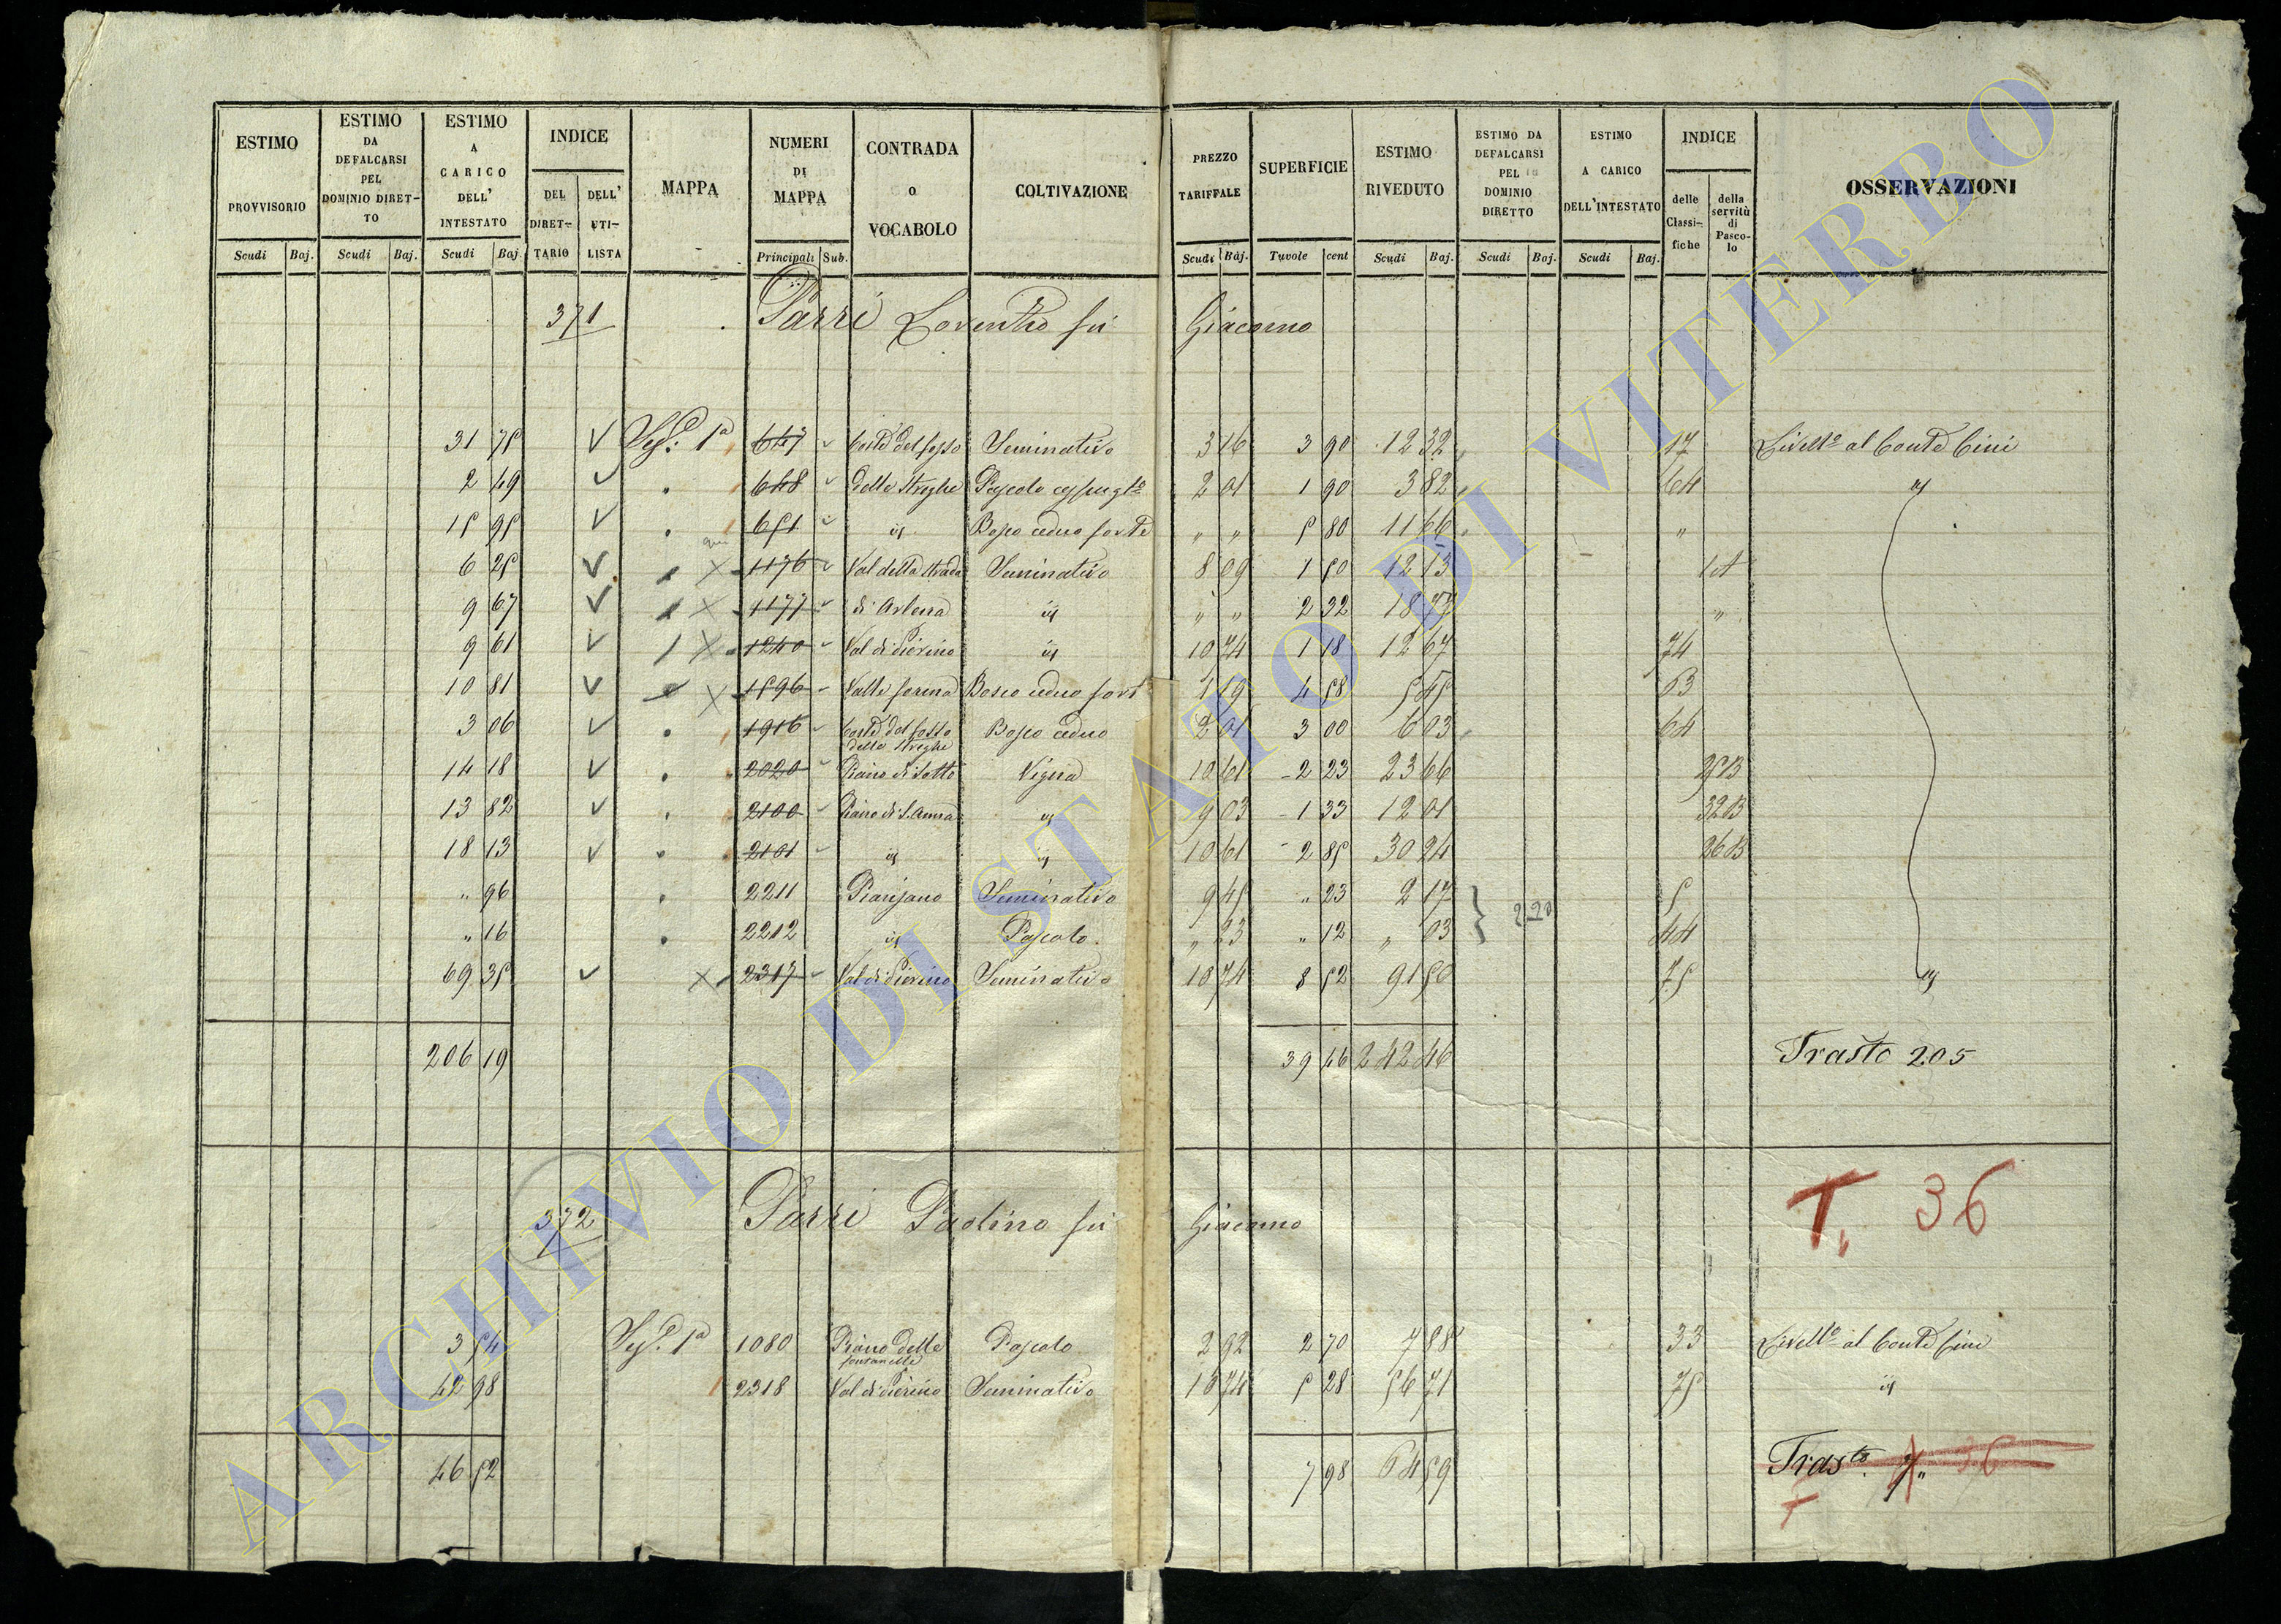 ESTIMO PROVVISORIO | ESTIMO DA DEFALCARSI PEL DOMINIO DIRET- TO | ESTIMO A CARICO DELL' INTESTATO | INDICE | MAPPA | NUMERI DI MAPPA | CONTRADA O VOCABOLO | COLTIVAZIONE | PREZZO TARIFFALE | SUPERFICIE | ESTIMO RIVEDUTO | ESTIMO DA DEFALCARSI PEL DOMINIO DIRETTO | ESTIMO A CARICO DELL'INTESTATO | INDICE | OSSERVAZIONI
DEL DIRET- TARIO | DELL' UTI- LISTA | delle Classi- fiche | della servitù di Pasco- lo
Scudi Baj. | Scudi Baj. | Scudi Baj. | Principali Sub. | Scudi Baj. | Tavole cent | Scudi Baj. | Scudi Baj. | Scudi Baj.
371 Parri Lorenzo fu Giacomo
31 75 V Sez.e 1a 647 Coste del fosso Seminativo 3 16 3 90 12 32 17 Livello al Conte Cini
2 49 V 648 delle Streghe Pascolo cespugl.o 2 01 1 90 3 82 64 id
15 95 V 651 id Bosco ceduo forte " " 5 80 11 66 "
6 25 V X 1176 Val della Strada Seminativo 8 09 1 50 12 13
9 67 V X 1177 di Arlena id " " 2 32 18 77 "
9 61 V X 1240 Val di Pierino id 10 74 1 18 12 67 74
10 81 V X 1596 Valle serena Bosco ceduo fort 1 19 4 58 5 45 63
3 06 V 1916 Coste del fosso delle Streghe Bosco ceduo 2 01 3 00 6 03 64
14 18 V 2020 Piano di Sotto Vigna 10 61 2 23 23 66 25B
13 82 V 2100 Piano di S. Anna id 9 03 1 33 12 01 32B
18 13 V 2101 id id 10 61 2 85 30 24 26B
" 96 2211 Pianzano Seminativo 9 45 " 23 2 17 } 2.20 5
" 16 2212 id Pascolo. " 23 " 12 " 03 44
69 35 V X 2317 Val di Pierino Seminativo 10 74 8 52 91 50 75 id
206 19 39 46 242 46 Trasto 205
T. 36
372 Parri Paolino fu Giacomo
3 54 Sez.e 1a 1080 Piano delle fontanelle Pascolo 2 92 2 70 7 88 33 Livello al Conte Cini
42 98 2318 Val di Pierino Seminativo 10 74 5 28 56 71 75 id
46 52 7 98 64 59 Trasto. 36
T
ARCHIVIO DI STATO DI VITERBO